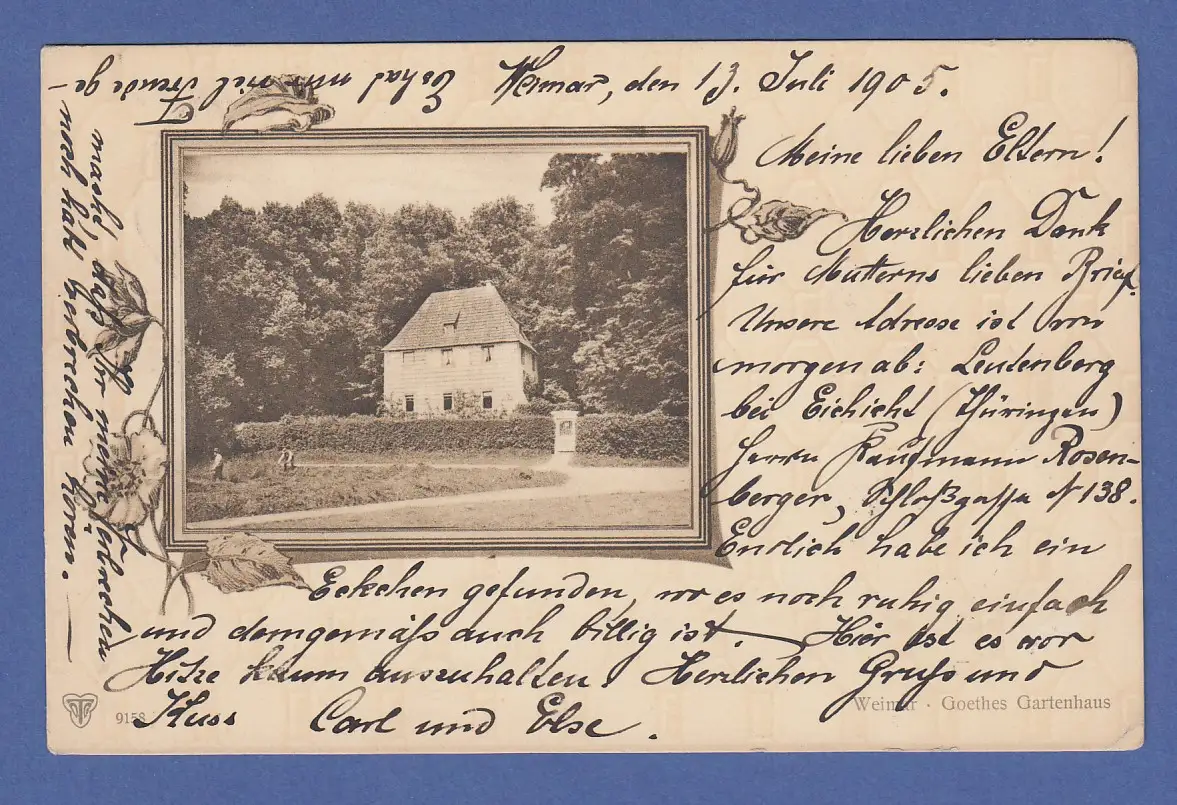 Weimar, den 13. Juli 1905.
Meine lieben Eltern!
Herzlichen Dank
für Mutterns lieben Brief.
Unsere Adresse ist von
morgen ab: Leutenberg
bei Eichicht (Thüringen)
Herrn Kaufmann Rosen-
berger, Schloßgasse № 138.
Endlich habe ich ein
Eckchen gefunden, wo es noch ruhig, einfach
und demgemäß auch billig ist. — Hier ist es vor
Hitze kaum auszuhalten. Herzlichen Gruß und
Kuss Carl und Else.
Es hat mir viel Freude ge-
macht, daß Ihr meine
noch habt sprechen hören. —
9158
Weimar · Goethes Gartenhaus